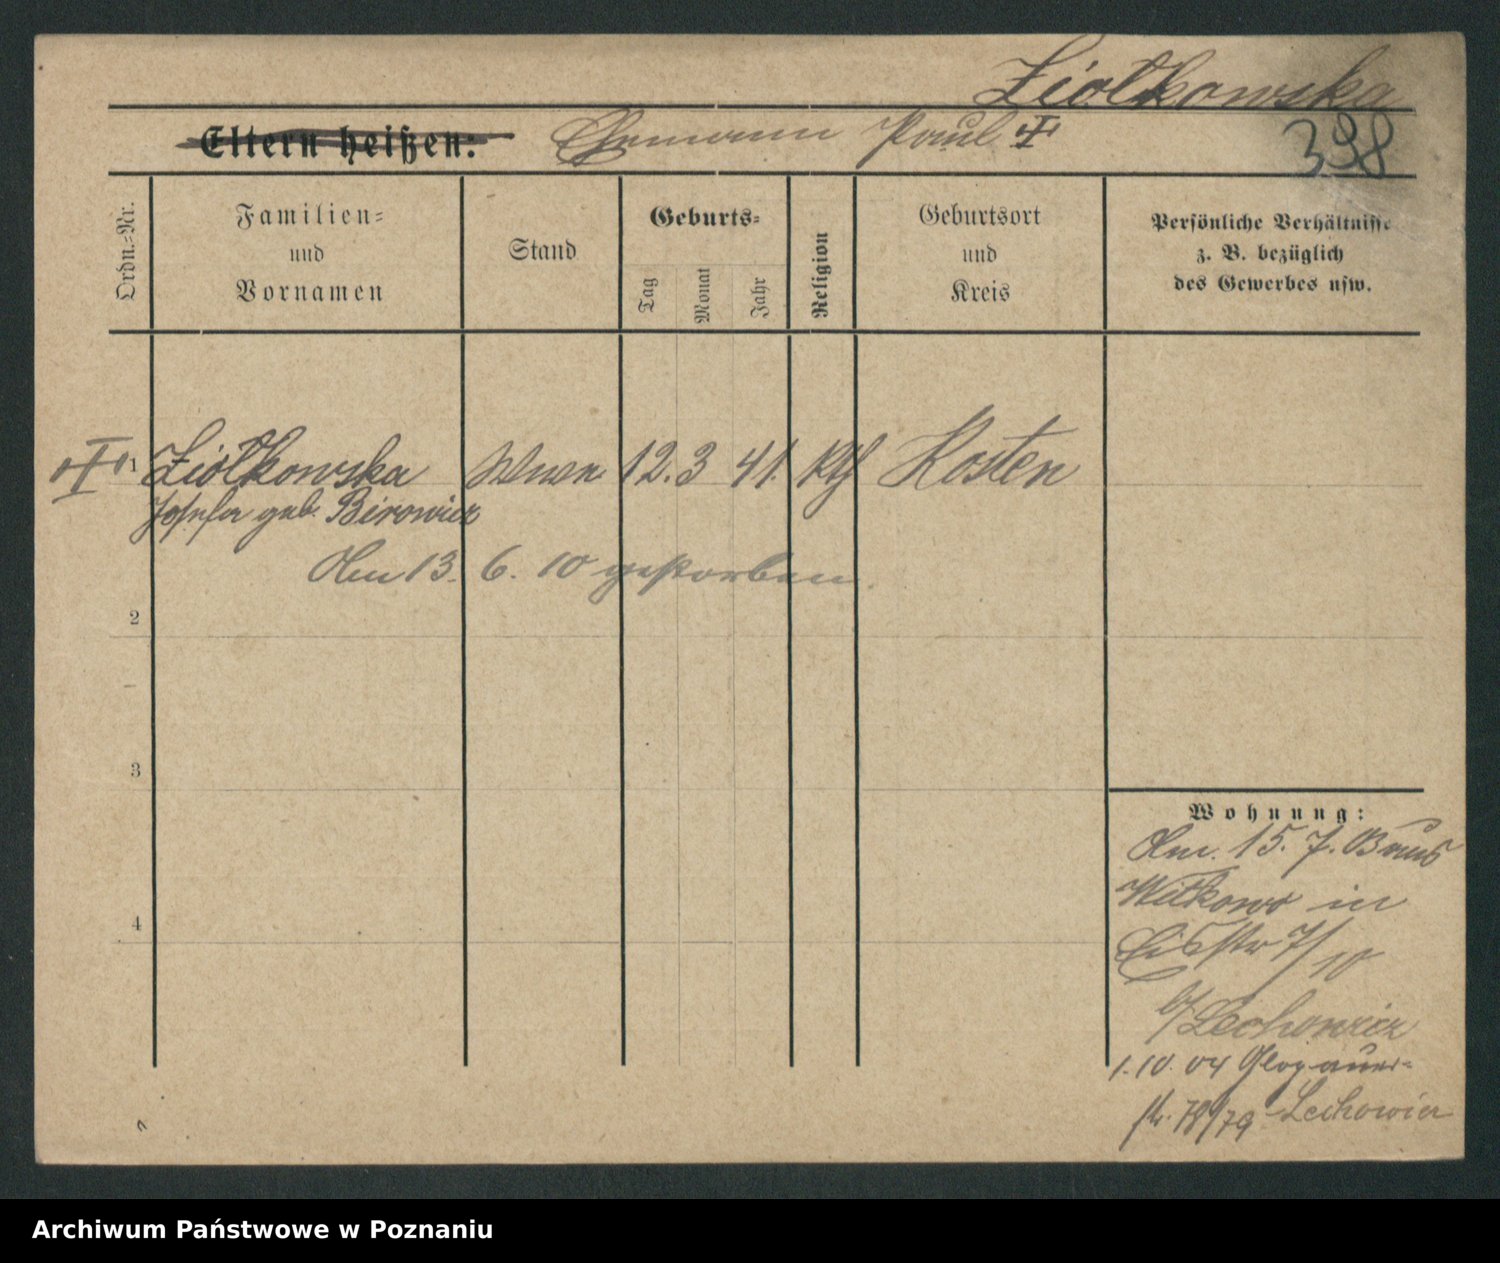 Ziołkowska
Eltern heißen: Ehemann Paul †
398
Ordn.=Nr.
Familien=
und
Vornamen
Stand
Geburts=
Tag
Monat
Jahr
Religion
Geburtsort
und
Kreis
Persönliche Verhältnisse
z. B. bezüglich
des Gewerbes usw.
1 Ziołkowska Wwe. 12. 3 41. Kth Kosten
Josefa geb. Birowicz
Am 13. 6. 10 gestorben.
2
3
4
Wohnung:
Am. 15. 7. aus
Witkowo in
Eisstr 7/10
b/ Lechowicz
1. 10. 04 Glogauer-
str. 78/79 Lechowicz
Archiwum Państwowe w Poznaniu